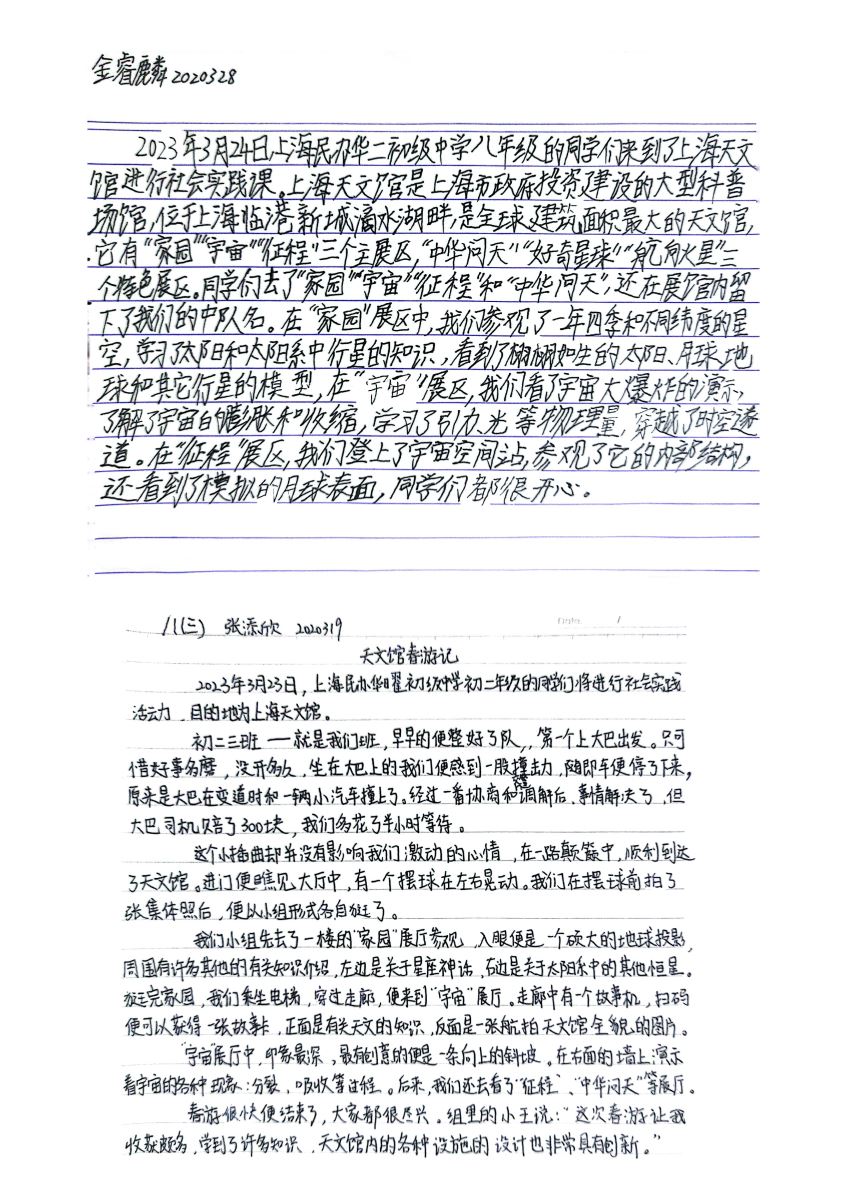 金睿麟2020328
2023年3月24日上海民办华二初级中学八年级的同学们来到了上海天文
馆进行社会实践课。上海天文馆是上海市政府投资建设的大型科普
场馆,位于上海临港新城滴水湖畔,是全球建筑面积最大的天文馆,
它有“家园”“宇宙”“征程”三个主展区,“中华问天”“好奇星球”“航向火星”三
个特色展区。同学们去了“家园”“宇宙”“征程”和“中华问天”,还在展馆内留
下了我们的中队名。在“家园”展区中,我们参观了一年四季和不同纬度的星
空,学习了太阳和太阳系中行星的知识,看到了栩栩如生的太阳、月球、地
球和其它行星的模型,在“宇宙”展区,我们看了宇宙大爆炸的演示,
了解了宇宙的膨胀和收缩,学习了引力、光等物理量,穿越了时空遂
道。在“征程”展区,我们登上了宇宙空间站,参观了它的内部结构,
还看到了模拟的月球表面,同学们都很开心。
八(三) 张添欣 2020319
Date. /
天文馆春游记
2023年3月23日,上海民办华曜初级中学初二年级的同学们将进行社会实践
活动,目的地为上海天文馆。
初二三班——就是我们班,早早的便整好了队,,第一个上大巴出发。只可
惜好事多磨,没开多久,坐在大巴上的我们便感到一股撞击力,随即车便停了下来,
原来是大巴在变道时和一辆小汽车撞上了。经过一番协商和调解后,事情解决了,但
大巴司机赔了300块,我们多花了半小时等待。
这个小插曲却并没有影响我们激动的心情,在一路颠簸中,顺利到达
了天文馆。进门便瞧见大厅中,有一个摆球在左右晃动。我们在摆球前拍了
张集体照后,便以小组形式各自逛了。
我们小组先去了一楼的“家园”展厅参观,入眼便是一个硕大的地球投影,
周围有许多其他的有关知识介绍,左边是关于星座神话,右边是关于太阳系中的其他恒星。
逛完家园,我们乘坐电梯,穿过走廊,便来到“宇宙”展厅。走廊中有一个故事机,扫码
便可以获得一张故事卡,正面是有关天文的知识,反面是一张航拍天文馆全貌的图片。
“宇宙”展厅中,印象最深,最有创意的便是一条向上的斜坡。在右面的墙上演示
着宇宙的各种现象:分裂,吸收等过程。后来,我们还去看了“征程”、“中华问天”等展厅。
春游很快便结束了,大家都很尽兴。组里的小王说:“这次春游让我
收获颇多,学到了许多知识,天文馆内的各种设施的设计也非常具有创新。”